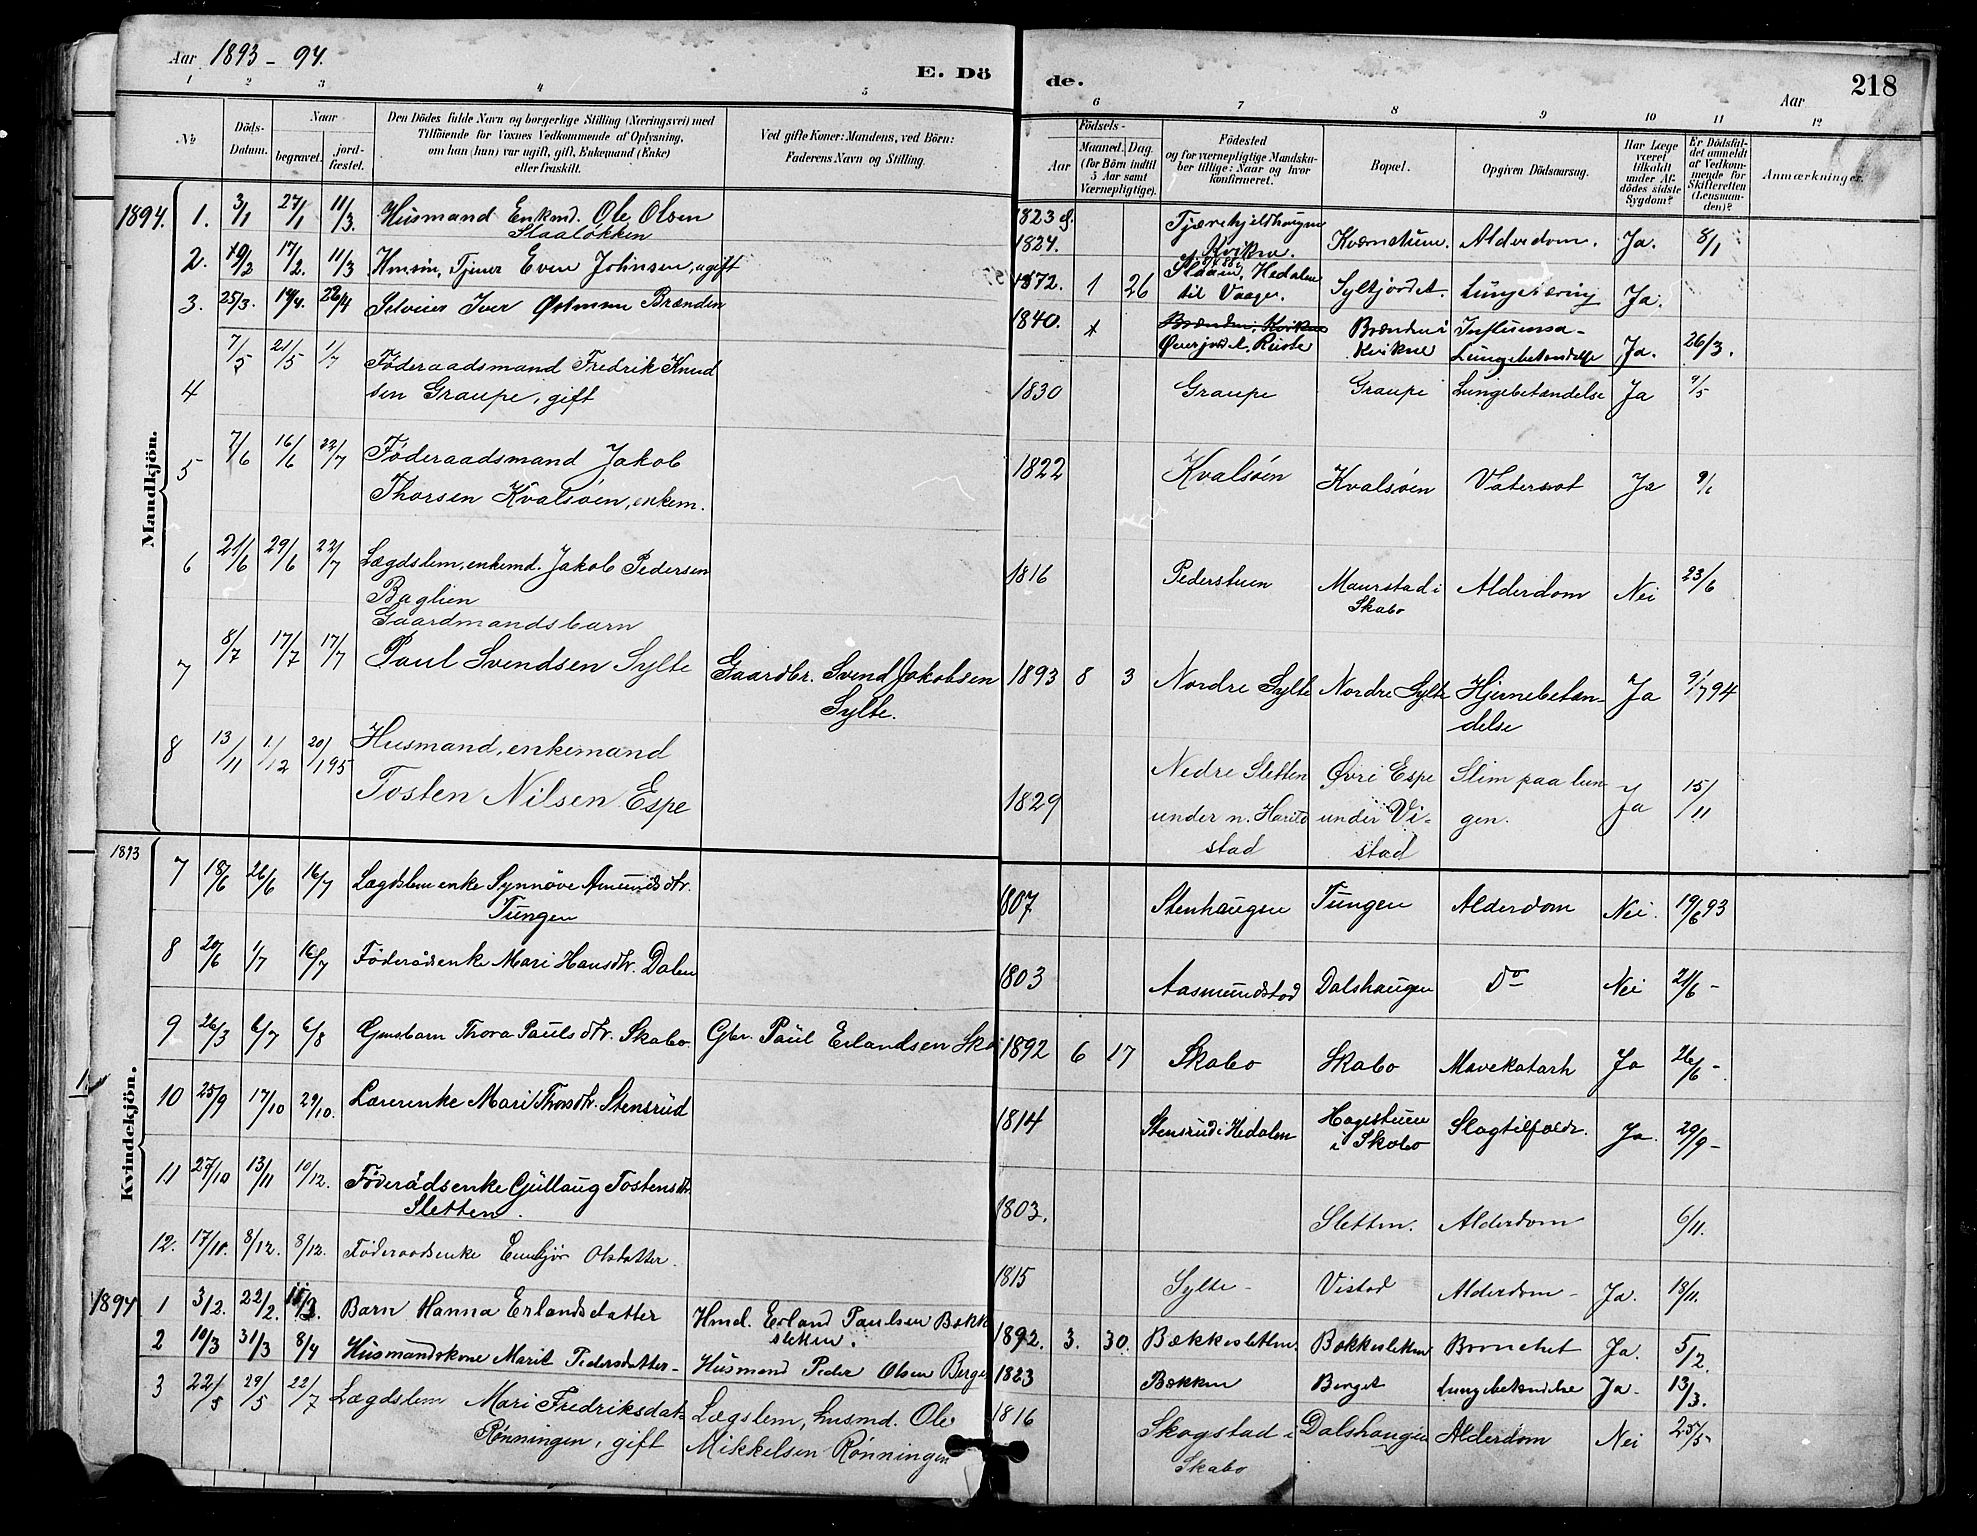 Aar 1893-94. E. Dö de. Aar 218
1 2 3 4 5 6 7 8 9 10 11 12
№
Döds-Datum.
Naar
begravet.
jord-fæstet.
Den Dödes fulde Navn og borgerlige Stilling (Næringsvei) med
Tilföiende for Voxnes Vedkommende af Oplysning,
om han (hun) var ugift, gift, Enkemand (Enke)
eller fraskilt.
Ved gifte Koner: Mandens, ved Börn:
Faderens Navn og Stilling.
Födsels-
Aar
Maaned. Dag.
(for Börn indtil
5 Aar samt
Værnepligtige).
Födested
og for værnepligtige Mandska-
ber tillige: Naar og hvor
konfirmeret.
Bopæl.
Opgiven Dödsaarsag.
Har Læge
været
tilkaldt
under Af-
dödes sidste
Sygdom?
Er Dödsfal-
det anmeldt
af Vedkom-
mende for
Skifteretten
(Lensman-
den)?
Anmærkninger.
Mandkjön.
1894. 1. 3/1 27/1 11/3. Husmand Enkmd. Ole Olsen
Slaaløkken
1823 1824. Kværnstuen. Alderdom. Ja. 8/1
2. 10/2 17/2. 11/3 Tjener Even Johnsen, ugift
1872. 1 26 Slaaen, Hedalen
til Vaage. Sylfjordet. Ja.
3. 25/3. 14/4. 28/4 Selveier Iver Østmme Brænden
1840. Brænden, Kvikne
Øverjordet, Ruste Brænden i
Kvikne Influensa-
Lungebetændelse Ja. 26/3.
4 7/5 21/5 1/7 Föderaadsmand Fredrik Knud
sen Graupe, gift
1830 Graupe Graupe Lungebetændelse Ja 9/5
5 7/6 16/6 22/7 Föderaadsmand Jakob
Thorsen Kvalsöen, enkem.
1822 Kvalsöen Kvalsöen Vatersot Ja 9/6
6 21/6 29/6 22/7 Lægdslem, enkemd. Jakob Pedersen
Baglien
1816 Pederstuen Maurstad i
Skabo Alderdom Nei 23/6
Gaardmandsbarn
7 8/7 17/7 17/7 Paul Svendsen Sylte Gaardbr. Svend Jakobsen
Sylte.
1893 8 3 Nordre Sylte Nordre Sylte Hjernebetæn-
delse Ja 9/7 94
8 13/11 1/12 20/1 95 Husmand, enkemand
Tosten Nilsen Espe
1829 Nedre Sletten
under n. Harild
stad Øvre Espe
under Vi-
stad Slim paa lun
gen. Ja 15/11
Kvindekjön.
1893 7 18/6 26/6 16/7 Lægdslem enke Synnöve Amundsdtr.
Tungen
1807 Stenhaugen Tungen Alderdom Nei. 19/6 93
8 20/6 1/7 16/7 Föderådsenke Mari Hansdtr. Dalen
1803 Aasmundstad Dalshaugen Do Nei 21/6 -
9 26/3 6/7 6/8 Gmsbarn Thora Paulsdtr. Skabo. Gbr. Paul Erlandsen Ska
1892 6 17 Skabo Skabo Mavekatarh Ja 26/6 -
10 25/9 17/10 29/10. Lærerenke Mari Thorsdtr. Stensrud
1814 Stensrud i Hedalen Hagestuen
i Skabo Slagtilfælde. Ja. 29/9 -
11 27/10 13/11 10/12. Föderådsenke Gullaug Tostensdtr.
Sletten.
1803. Sletten. Alderdom 6/11.
12. 17/10. 8/12. 8/12. Föderaadsenke Olsdatter.
1815 Sylte - Vistad Alderdom - Ja. 13/11.
1894 1 3/2. 22/2. 11/3. Barn Hanna Erlandsdatter Hmd. Erland Paulsen Bækk
sletten.
1892. 3. 30. Bækkesletten. Bækkesletten Bronchit Ja. 5/2.
2 10/3 31/3 8/4 Husmandskone Marit Pedersdatter- Husmand Peder Olsen Berge
1823 Bækken Berget Lungebetændelse Ja. 13/3.
3 22/5 29/5 22/7 Lægdslem Mari Fredriksdat-
Rønningen, gift Lægslem, husmd. Ole
Mikkelsen Rønningen
1816 Skogstad i
Skabo Dalshaugen Alderdom Nei 25/5